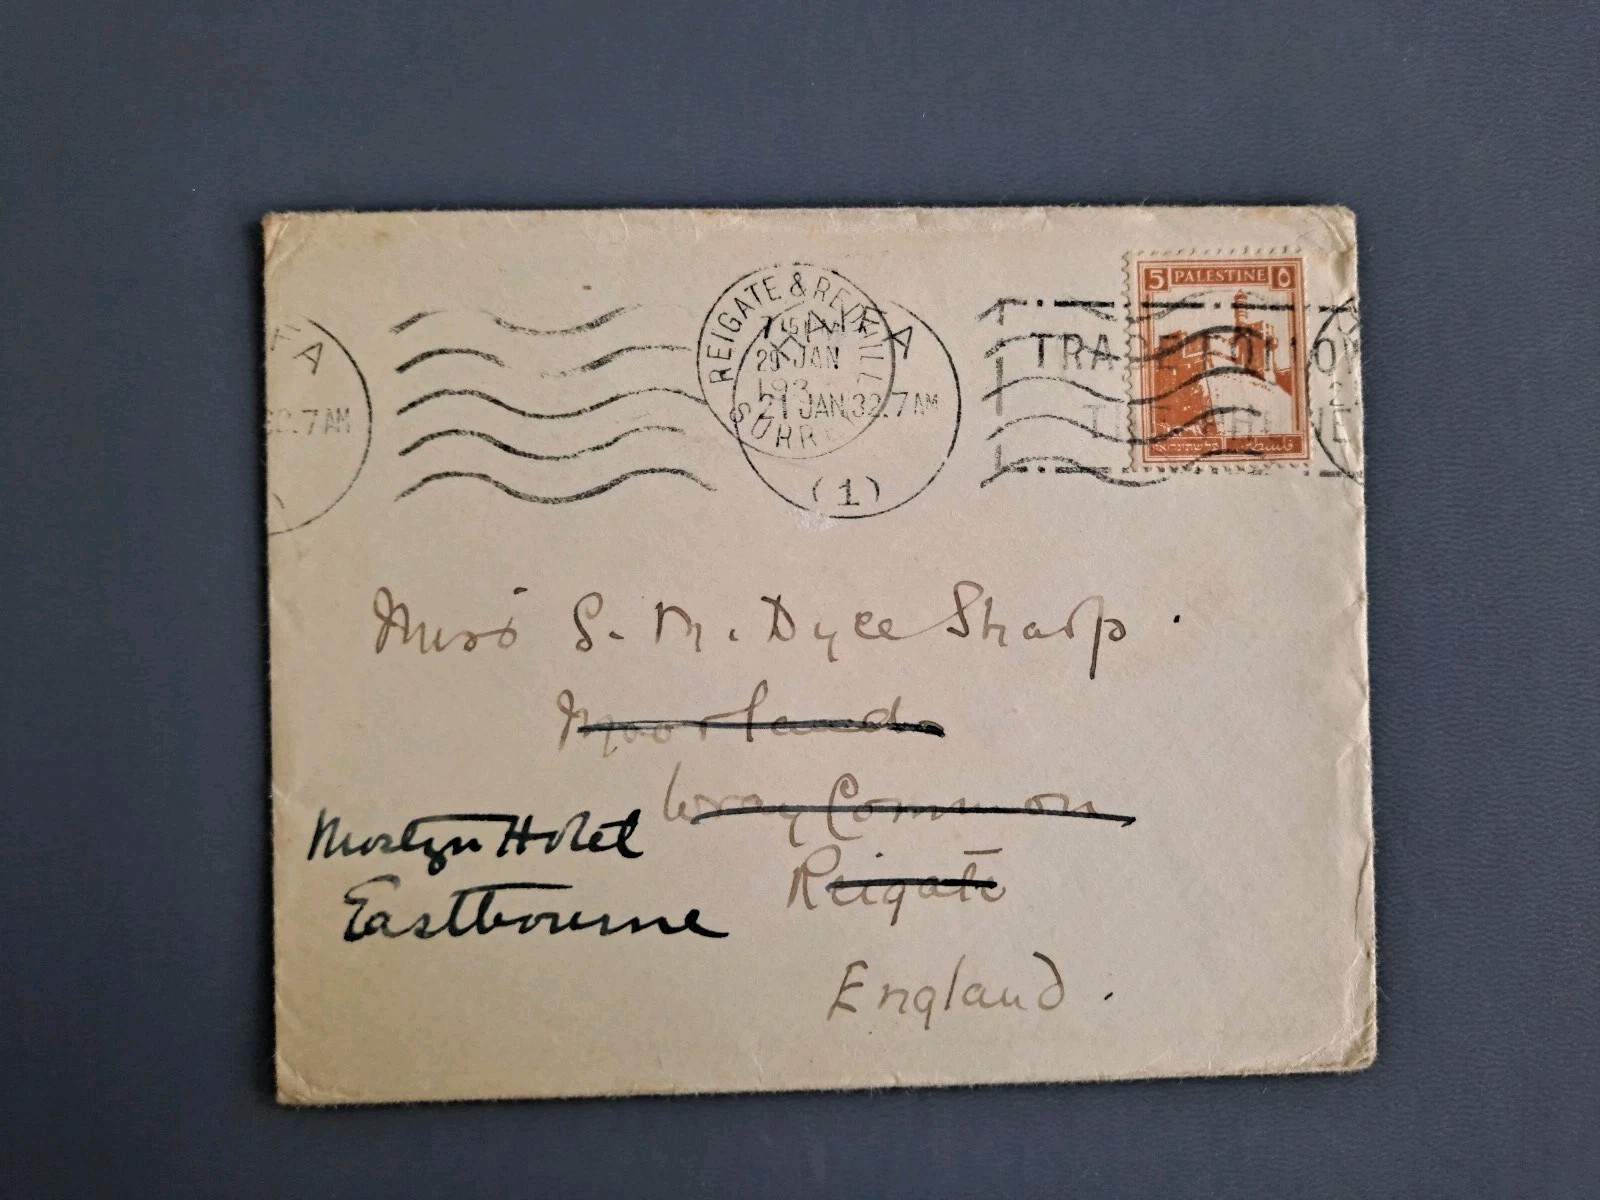 REIGATE & REDHILL
SURREY
7
29 JAN
193
HAIFA
21 JAN 32.7 AM
(1)
FA
32.7 AM
TRADE
5 PALESTINE ٥
פלשתינה א״י
فلسطين
Miss S. M. Dyce Sharp.
Moorlands
Wray Common
Reigate
England.
Mostyn Hotel
Eastbourne